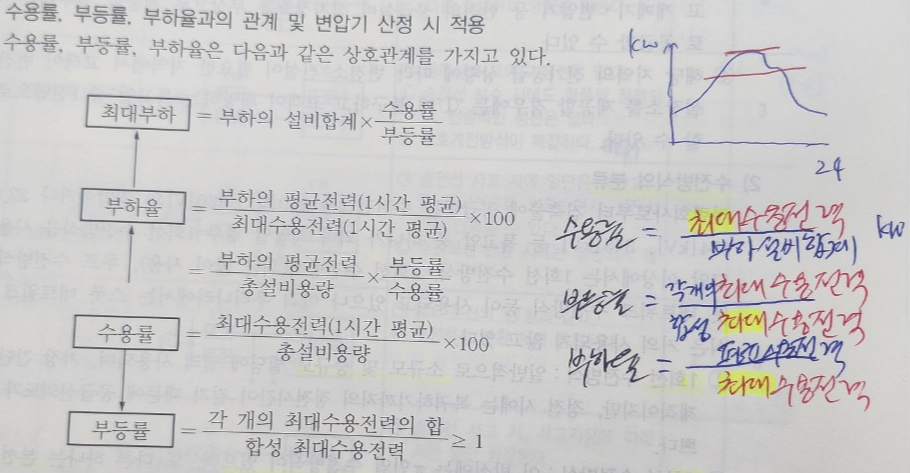 수용률, 부등률, 부하율과의 관계 및 변압기 산정 시 적용
수용률, 부등률, 부하율은 다음과 같은 상호관계를 가지고 있다.
최대부하 = 부하의 설비합계 × 수용률 / 부등률
부하율 = 부하의 평균전력(1시간 평균) / 최대수용전력(1시간 평균) × 100
= 부하의 평균전력 / 총설비용량 × 부등률 / 수용률
수용률 = 최대수용전력(1시간 평균) / 총설비용량 × 100
부등률 = 각 개의 최대수용전력의 합 / 합성 최대수용전력 ≥ 1
kw
24
수용률 = 최대수용전력 / 부하설비합계 kw
부등률 = 각개의 최대수용전력 / 합성 최대수용전력
부하율 = 평균수용전력 / 최대수용전력